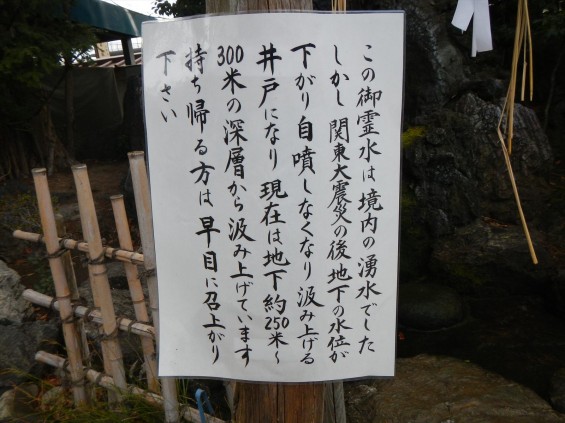 この御霊水は境内の湧水でした
しかし関東大震災の後地下の水位が
下がり自噴しなくなり汲み上げる
井戸になり現在は地下約250米~
300米の深層から汲み上げています
持ち帰る方は早目に召上がり
下さい